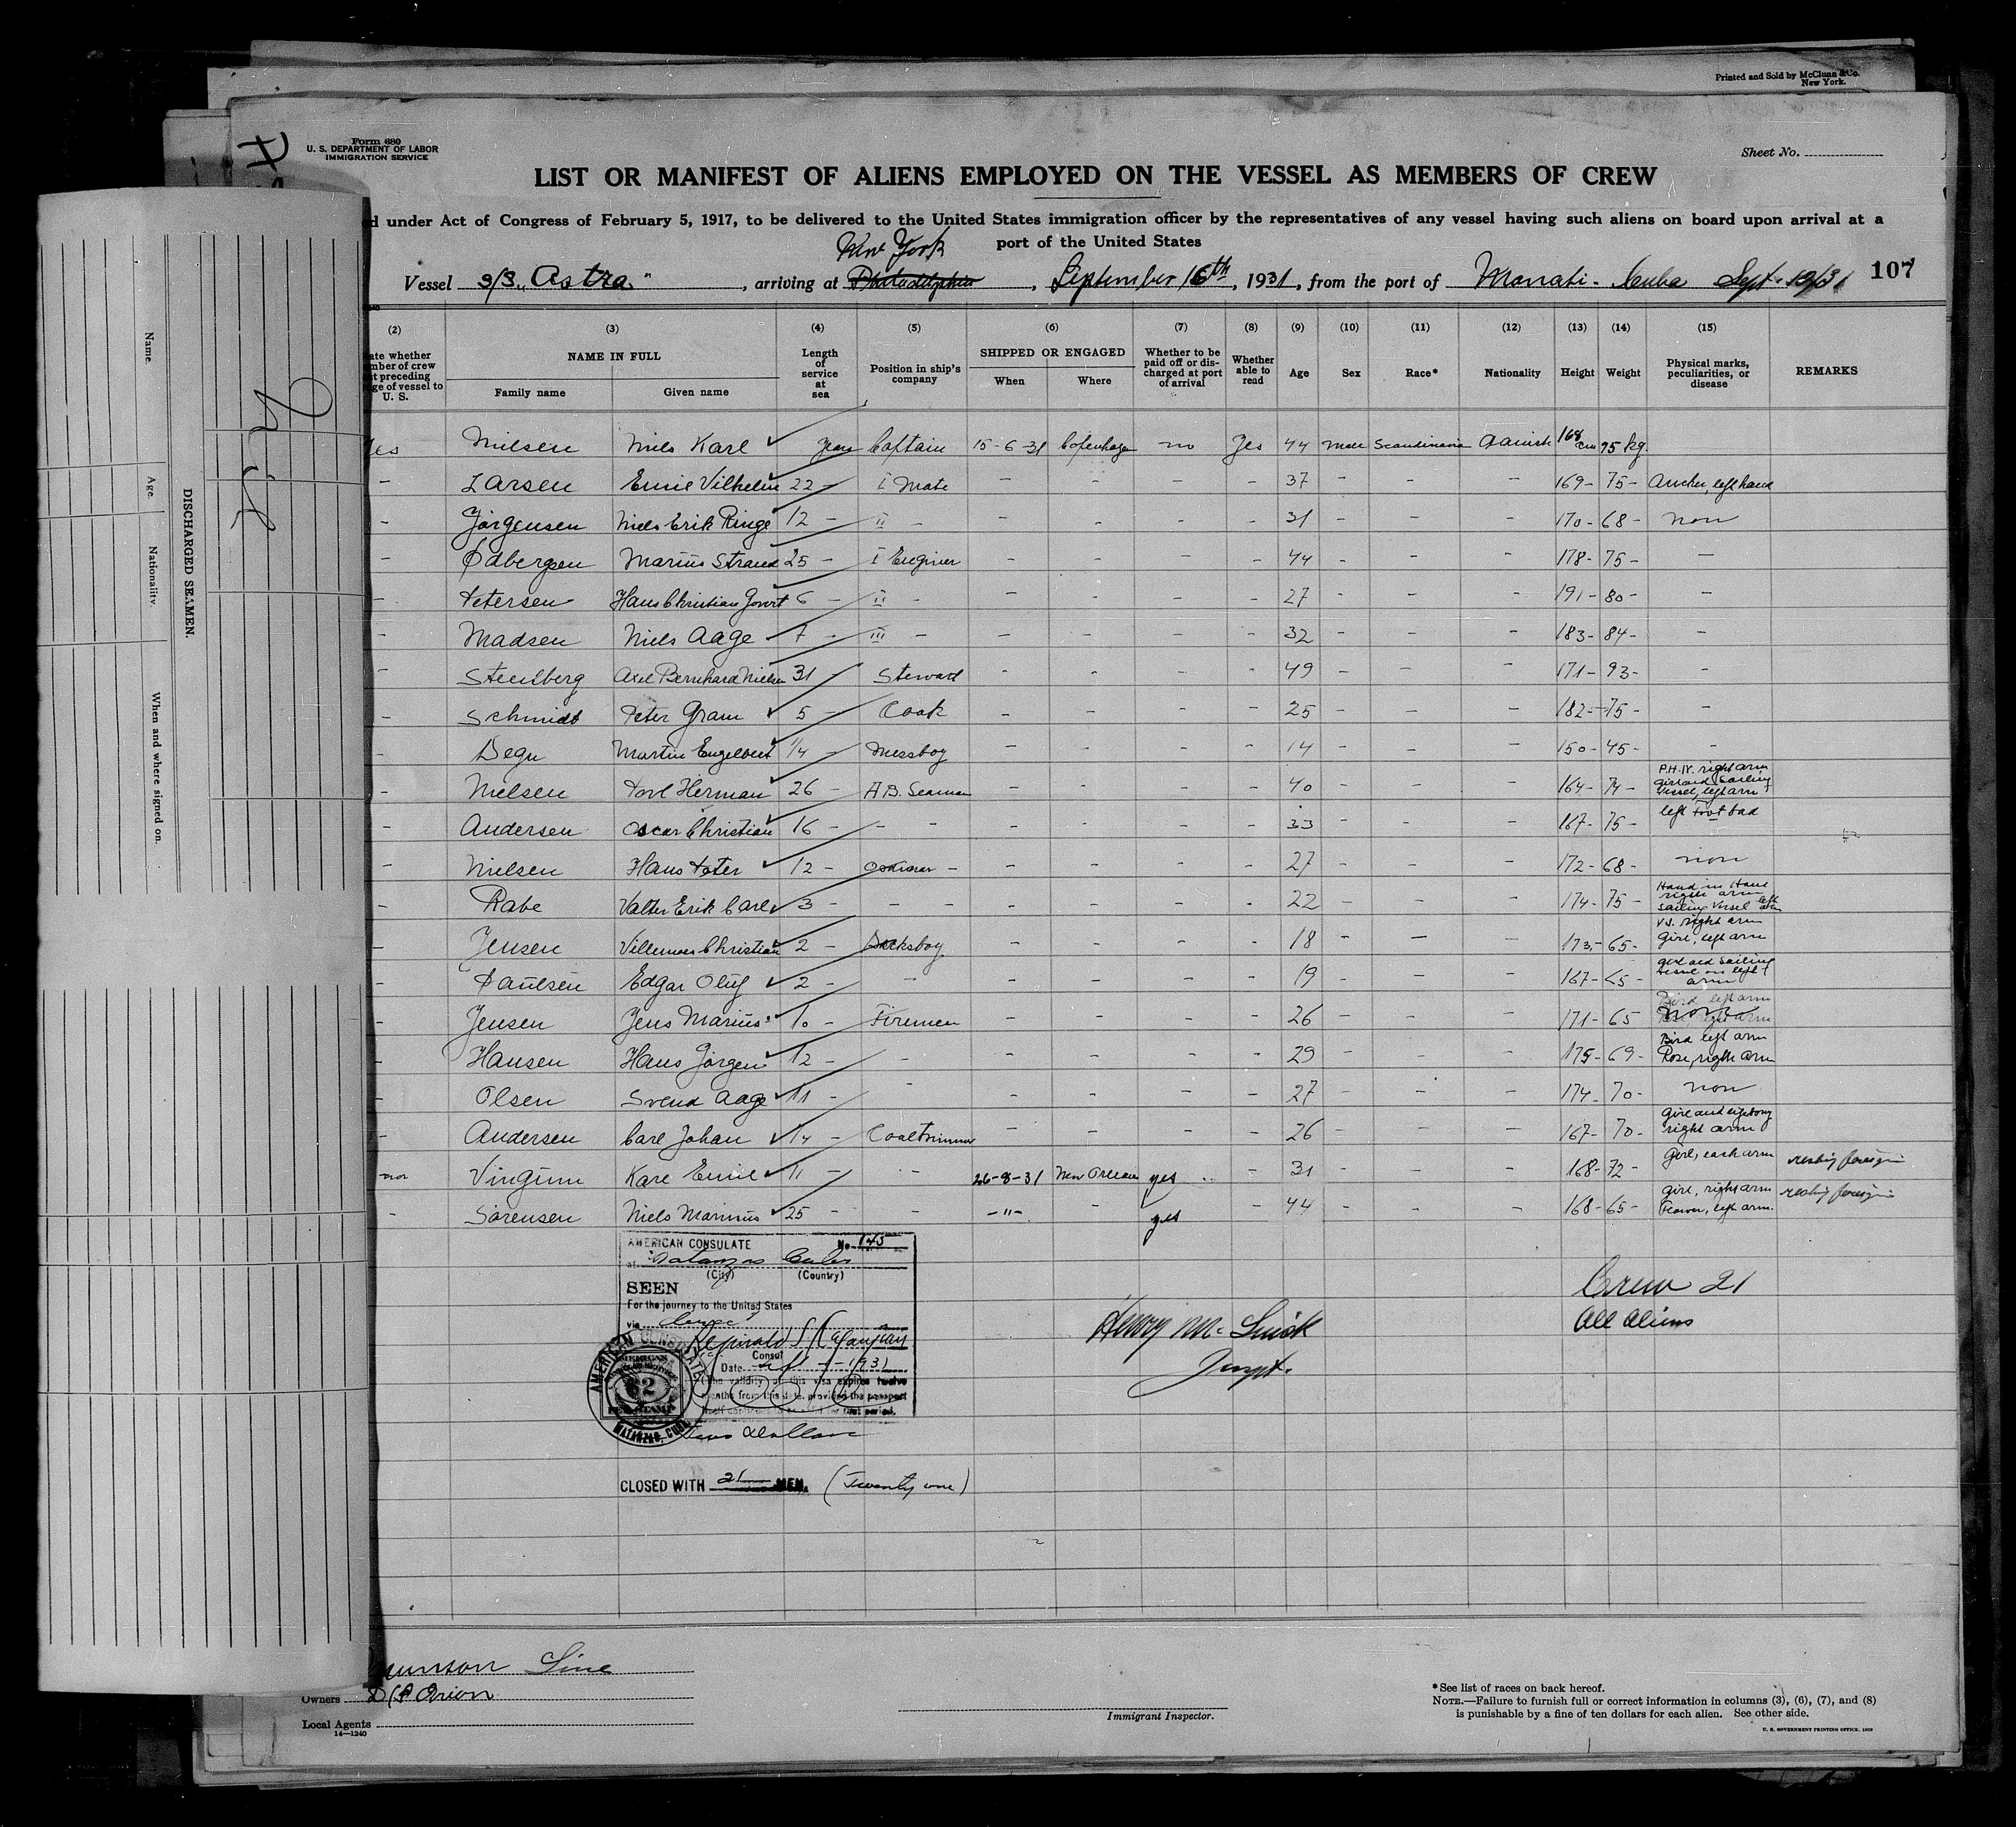 Printed and Sold by McClunn & Co.
New York.
Form 680
U. S. DEPARTMENT OF LABOR
IMMIGRATION SERVICE
Sheet No.
LIST OR MANIFEST OF ALIENS EMPLOYED ON THE VESSEL AS MEMBERS OF CREW
d under Act of Congress of February 5, 1917, to be delivered to the United States immigration officer by the representatives of any vessel having such aliens on board upon arrival at a
port of the United States
New York
Vessel S/S „Astra" , arriving at Philadelphia , September 16th , 1931 , from the port of Manati - Cuba Sept. 107
(2) (3) (4) (5) (6) (7) (8) (9) (10) (11) (12) (13) (14) (15)
ate whether
mber of crew
t preceding
ge of vessel to
U. S.
NAME IN FULL
Family name Given name
Length
of
service
at
sea
Position in ship's
company
SHIPPED OR ENGAGED
When Where
Whether to be
paid off or dis-
charged at port
of arrival
Whether
able to
read
Age Sex Race* Nationality Height Weight
Physical marks,
peculiarities, or
disease
REMARKS
Yes Nielsen Niels Karl years Captain 15-6-31 Copenhagen no Yes 44 male Scandinavia Danish 168 cm 95 kg.
- Larsen Emil Vilhelm 22 - I Mate - - - - 37 - - - 169 - 75 - Ancher, left hand
- Jørgensen Niels Erik Ringe 12 - II - - - - - 31 - - - 170 - 68 - non
- Ødbergsen Marius Strand 25 - I Enginer - - - - 44 - - - 178 - 75 - -
- Petersen Hans Christian 6 - II - - - - - 27 - - - 191 - 80 - -
- Madsen Niels Aage 7 - III - - - - - 32 - - - 183 - 84 - -
- Stensberg Axel Bernhard Nielsen 31 - Steward - - - - 49 - - - 171 - 93 - -
- Schmidt Peter Gram 5 - Cook - - - - 25 - - - 182 - 75 - -
- Degn Martin Engelbert 1/4 - Messboy - - - - 14 - - - 150 - 45 - -
- Nielsen Poul Herman 26 - A.B. Seaman - - - - 40 - - - 164 - 74 - P.H.N. right arm Girl and Sailing Vessel, left arm
- Andersen Oscar Christian 16 - - - - - - - 33 - - - 167 - 75 - left Foot bad
- Nielsen Hans Peter 12 - - - - - - 27 - - - 172 - 68 - non
- Rabe Valter Erik Carl 3 - - - - - - - 22 - - - 174 - 75 - Hand in Hand right arm Sailing Vessel left arm
- Jensen Villemoes Christian 2 - Decksboy - - - - 18 - - - 173 - 65 - V.J. right arm Girl, left arm
- Paulsen Edgar Oluf 2 - - - - - - 19 - - - 167 - 65 - Girl and Sailing Vessel on left arm
- Jensen Jens Marius 10 - Firemen - - - - 26 - - - 171 - 65 Bird left arm
- Hansen Hans Jørgen 12 - - - - - - 29 - - - 175 - 69 - Bird left arm Rose, right arm
- Olsen Svend Aage 11 - - - - - - 27 - - - 174 - 70 - non
- Andersen Carl Johan 14 - Coaltrimmer - - - - 26 - - - 167 - 70 - Girl and right arm
non Karl Emil 11 - - 26-8-31 New Orleans yes - 31 - - - 168 - 72 - Girl, each arm reship foreign
- Sørensen Niels Marinus 25 - - -"- - yes - 44 - - - 168 - 65 - Girl, right arm Flower, left arm. reship foreign
AMERICAN CONSULATE No. 145
at Matanzas Cuba
(City) (Country)
SEEN
For the journey to the United States
via direct
Reginald S.
Consul
Date 1931
(The validity of this visa expires twelve
months from this date, provided the passport
itself continues to be valid for that period.
AMERICAN CONSULATE
MATANZAS, CUBA
CLOSED WITH 21 MEN. (Twenty one)
Crew 21
All Aliens
Inspt.
Munson Line
Owners D/S Orion
Local Agents
14—1240
Immigrant Inspector.
*See list of races on back hereof.
NOTE.—Failure to furnish full or correct information in columns (3), (6), (7), and (8)
is punishable by a fine of ten dollars for each alien. See other side.
U. S. GOVERNMENT PRINTING OFFICE. 1929
DISCHARGED SEAMEN.
Name.
Age.
Nationality.
When and where signed on.